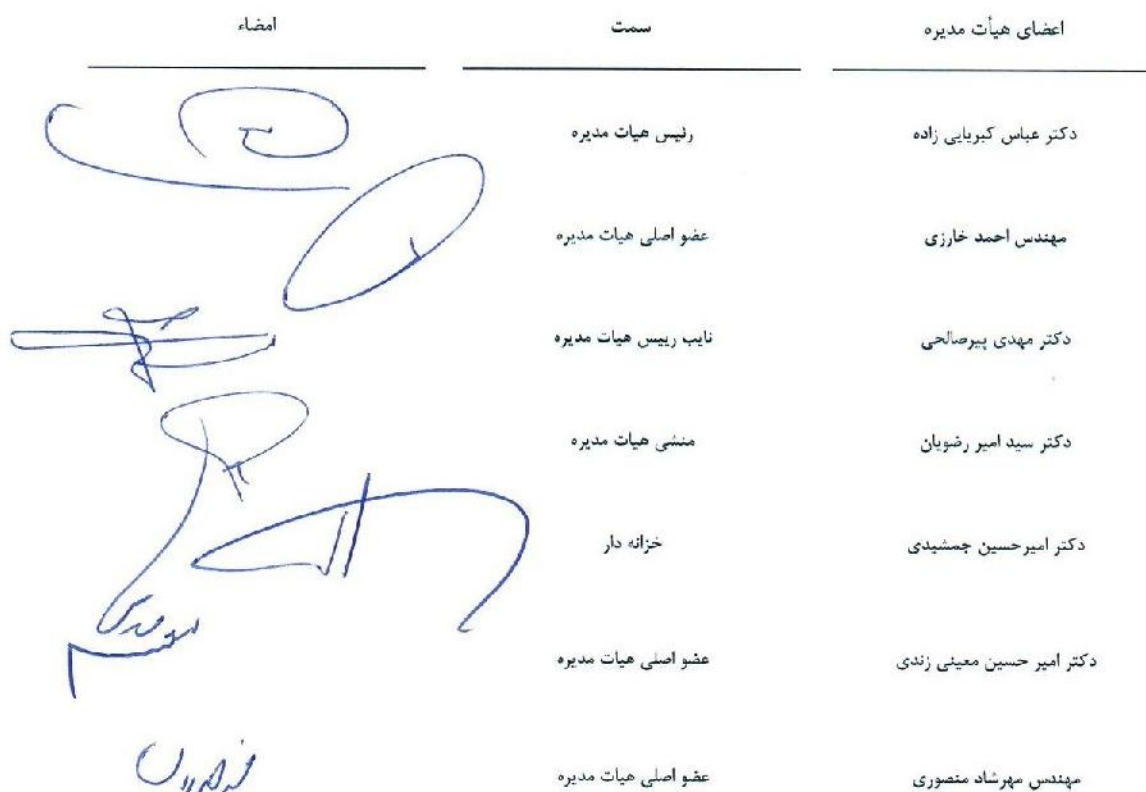 اعضای هیأت مدیره سمت امضاء
دکتر عباس کبریایی زاده رئیس هیات مدیره
مهندس احمد خارزی عضو اصلی هیات مدیره
دکتر مهدی پیرصالحی نایب رییس هیات مدیره
دکتر سید امیر رضویان منشی هیات مدیره
دکتر امیرحسین جمشیدی خزانه دار
دکتر امیر حسین معینی زندی عضو اصلی هیات مدیره
مهندس مهرشاد منصوری عضو اصلی هیات مدیره